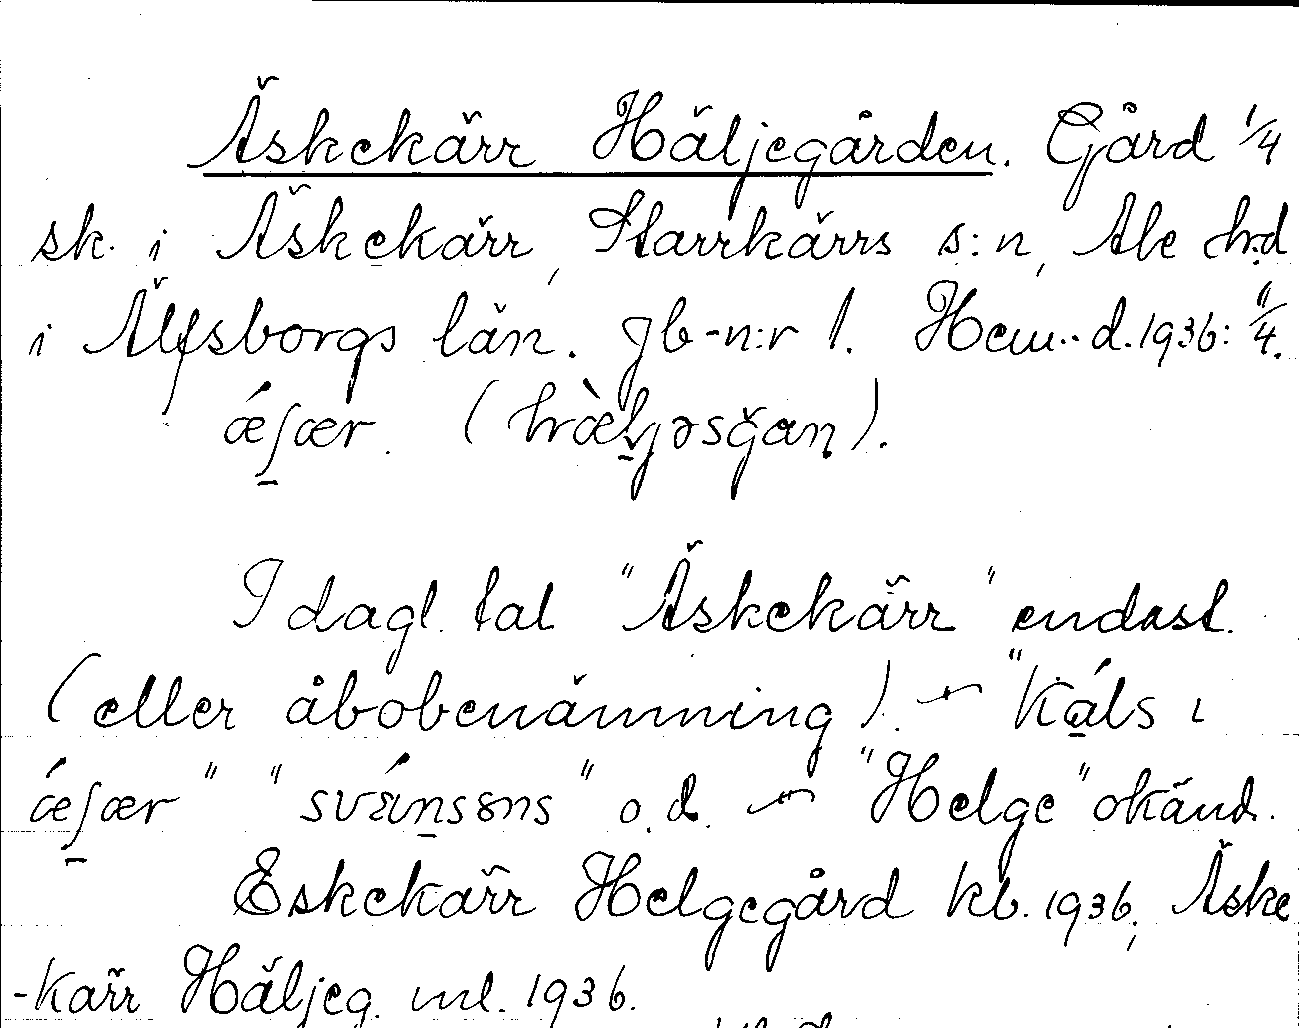 Äskekärr Häljegården. Gård 1/4
sk. i Äskekärr, Starrkärrs s:n, Ale h:d
i Älfsborgs län. Jb-n:r 1. Hem.. d. 1936: 1/4.
ǽʃær. (hæ̀ljəsgan).
I dagl. tal "Äskekärr" endast.
(eller åbobenämning). – "káls ı
ǽʃær" "svǽnsɷns" o.d. – "Helge" okänd.
Eskekärr Helgegård kb. 1936, Äske
-kärr Häljeg. ml. 1936.